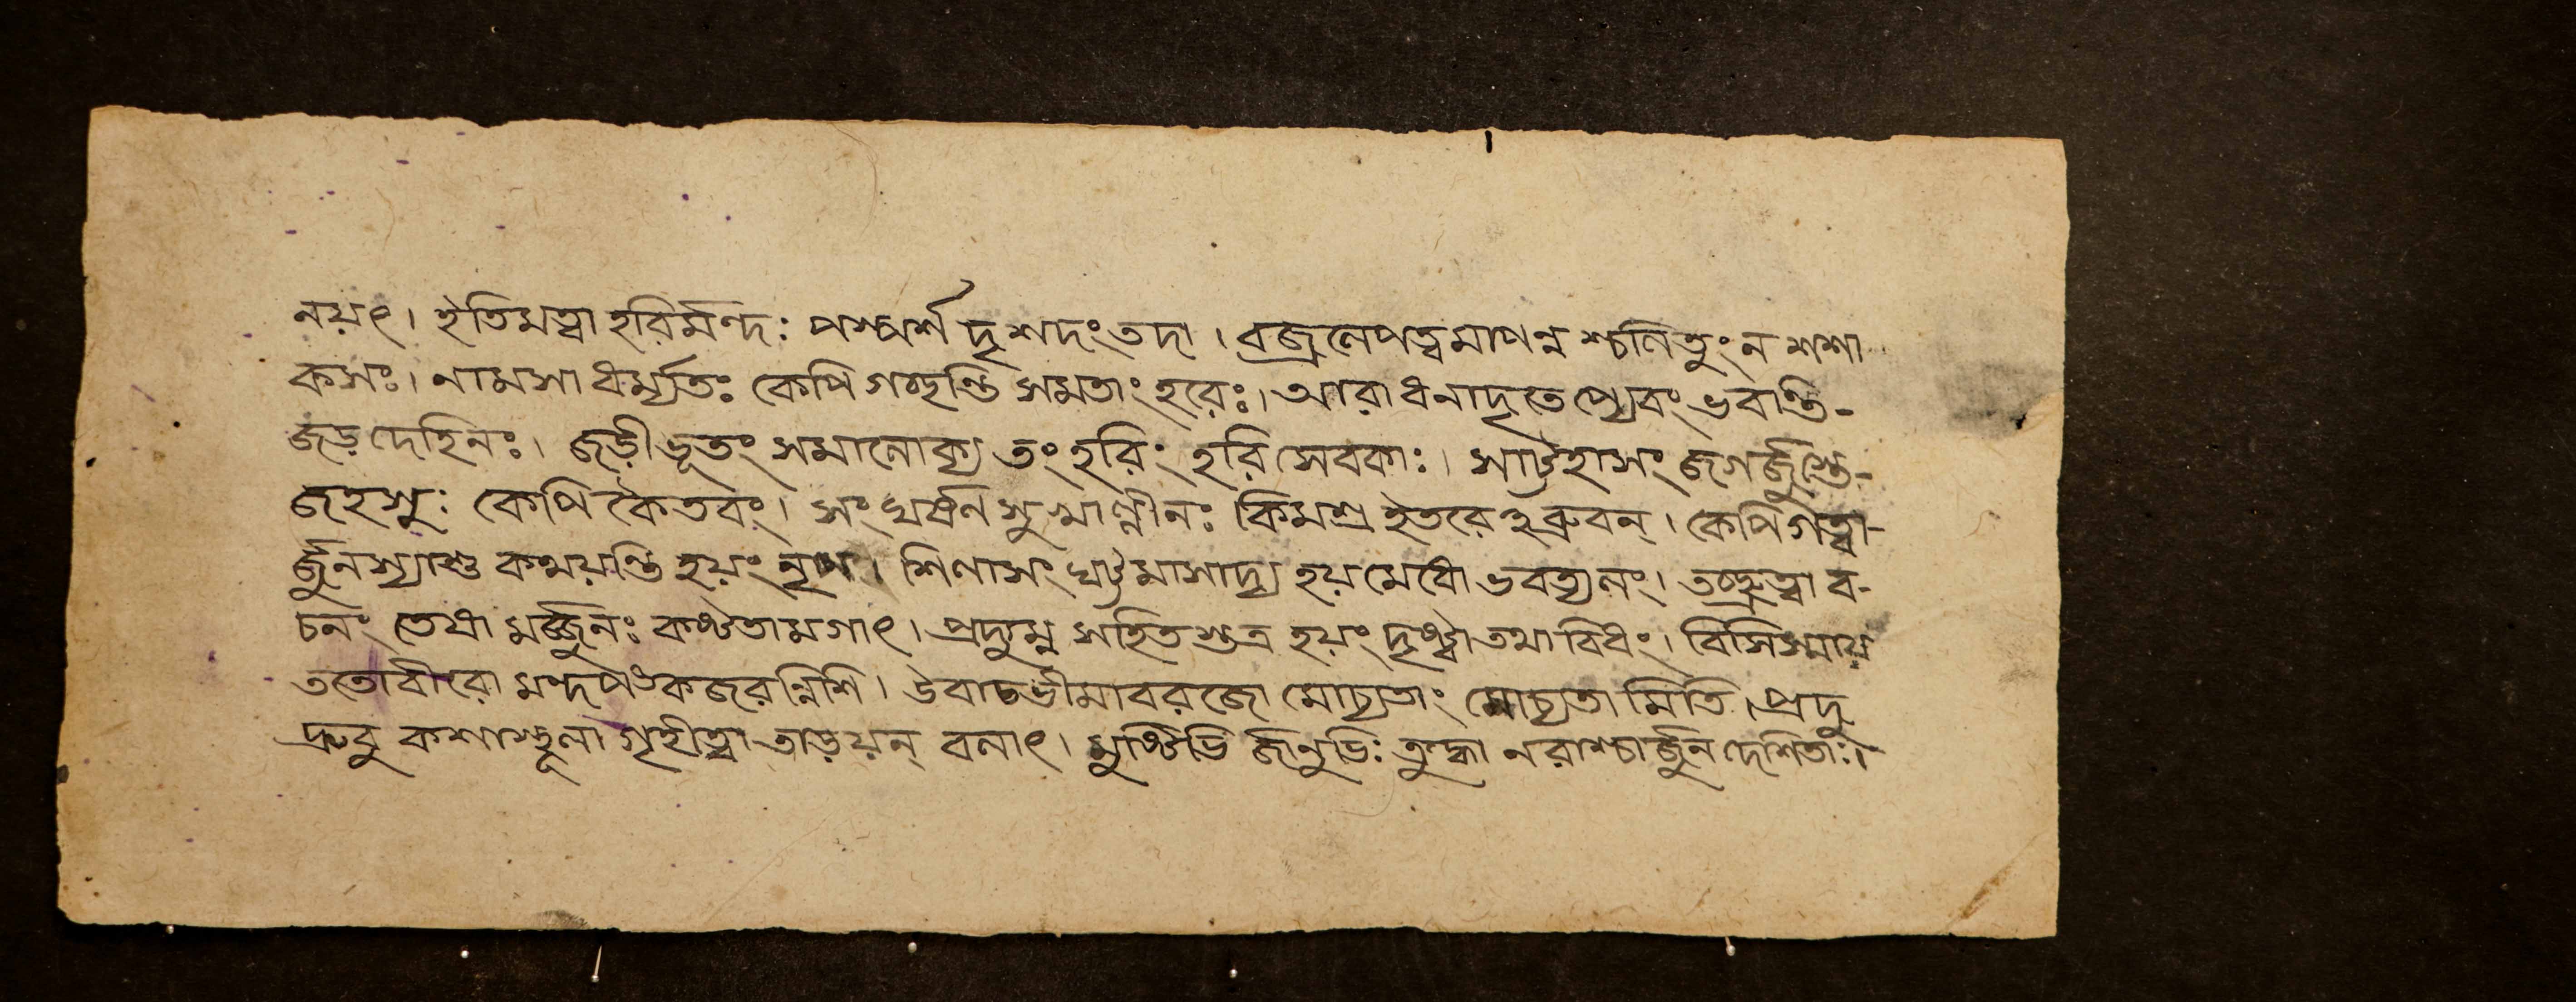 নয়ৎ। ইতিমত্বা হরির্মন্দঃ পস্পর্শ দৃশদং তদা। বজ্রলেপত্বমাপন্ন শ্চলিতুং ন শশা
কসঃ। নামসা ধর্ম্যতঃ কেপি গচ্ছন্তি সমতাং হরেঃ। আরাধনাদৃতে প্যেবং ভবান্তি-
জড় দেহিনঃ। জড়ীভূতং সমালোক্য তং হরিং হরি সেবকাঃ। সাট্টহাসং জগর্জুস্তে-
জহসুঃ কেপি কৈতবং। সংঘর্ষন সুখাল্লীনঃ কিমশ্ব ইতরে হব্রুবন্। কেপি গত্বা-
র্জুনস্যাশু কথয়ন্তি হয়ং নৃপ। শিলাসংঘট্টমাসাদ্য হয়মেধো ভবত্যলং। তচ্ছ্রুত্বা ব-
চনং তেষা মর্জ্জুনঃ কষ্টতামগাৎ। প্রদ্যুম্ন সহিতস্তত্র হয়ং দৃষ্ট্বা তথাবিধং। বিসিস্মায়
ততোবীরো মন্দপঙ্কজরন্নিশি। উবাচ ভীমাবরজো মোচ্যতাং মোচ্যতা মিতি। প্রদু
দ্রুবু কশাস্থূলা গৃহীত্বা তাড়য়ন্ বলাৎ। মুষ্টিভি র্জানুভিঃ ক্রুদ্ধা নরাশ্চার্জুন দেশিতাঃ।-